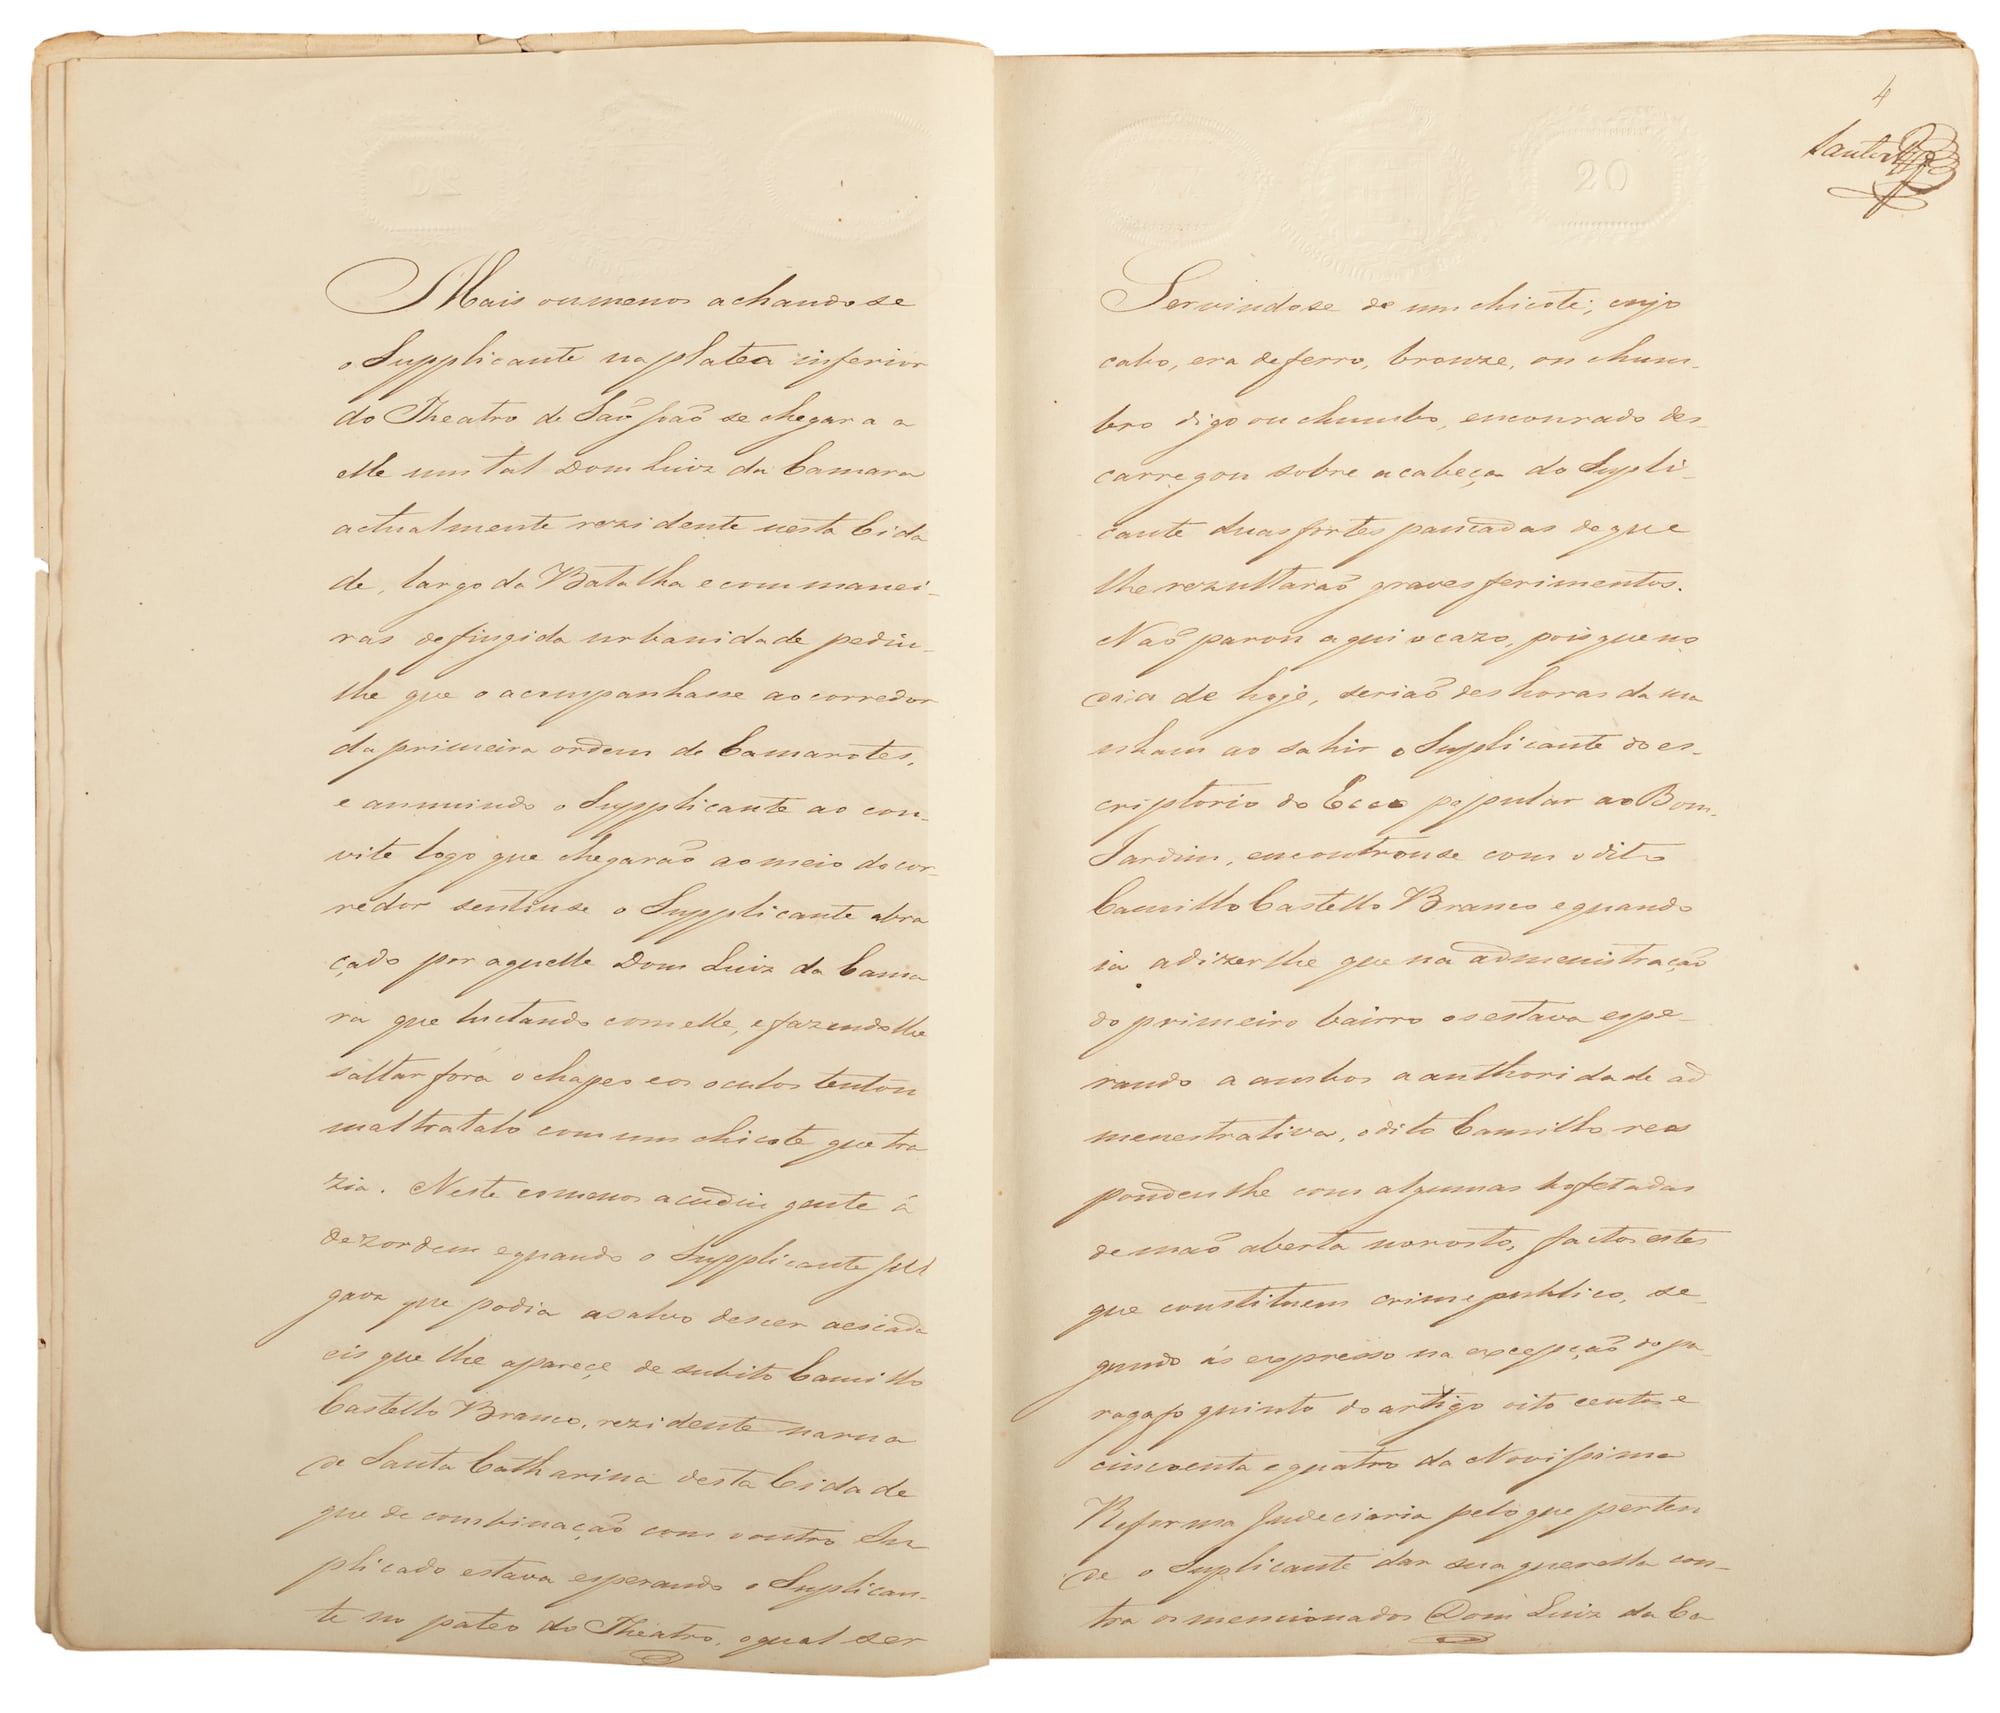 Mais ou menos achando se
o Supplicante na platea inferior
do Theatro de Saõ Joaõ se chegara a
elle um tal Dom Luiz da Camara
actualmente rezidente nesta Cida
de, largo da Batalha e com manei-
ras de fingida urbanidade pediu-
lhe que o acompanhasse ao corredor
da primeira ordem de Camarotes,
e annuindo o Supplicante ao con-
vite logo que chegaraõ ao meio do cor-
redor sentiu se o Supplicante abra
çado por aquelle Dom Luiz da Cama
ra que luctando com elle, e fazendo lhe
saltar fora o chapeo e os oculos tentou
maltratalo com um chicote que tra
zia. Neste comenos acudiu gente á
dezordem e quando o Supplicante jul
gava que podia a salvo descer a escada
eis que lhe apareçe de subito Camillo
Castello Branco, rezidente na rua
de Santa Catharina desta Cidade
que de combinaçaõ com o outro Su
plicado estava esperando o Suplican-
te no pateo do Theatro, o qual ser
4
Servindo se de um chicote; cujo
cabo, era de ferro, bronze, ou chum-
bro digo ou chumbo, encourado des-
carregou sobre a cabeça do Supli-
cante duas fortes pancadas de que
lhe rezultaraõ graves ferimentos.
Naõ parou aqui o cazo, pois que no
dia de hoje, seriaõ des horas da ma
nham ao sahir o Suplicante do es-
criptorio do Ecco popular ao Bom-
Jardim, encontrou se com o dito
Camillo Castello Branco e quando
ia a dizer lhe que na admenistraçaõ
do primeiro bairro os estava espe-
rando a ambos a authoridade ad
menestrativa, o dito Camillo res
pondeu lhe com algumas bofetadas
de maõ aberta no rosto, factos estes
que constituem crime publico, se-
gundo ás expresso na excepçaõ do pa-
ragafo quinto do artigo oito centos e
cincoenta e quatro da Novissima
Reforma Judeciaria pelo que perten
de o Suplicante dar sua querella con-
tra os mencionados Dom Luiz da Ca